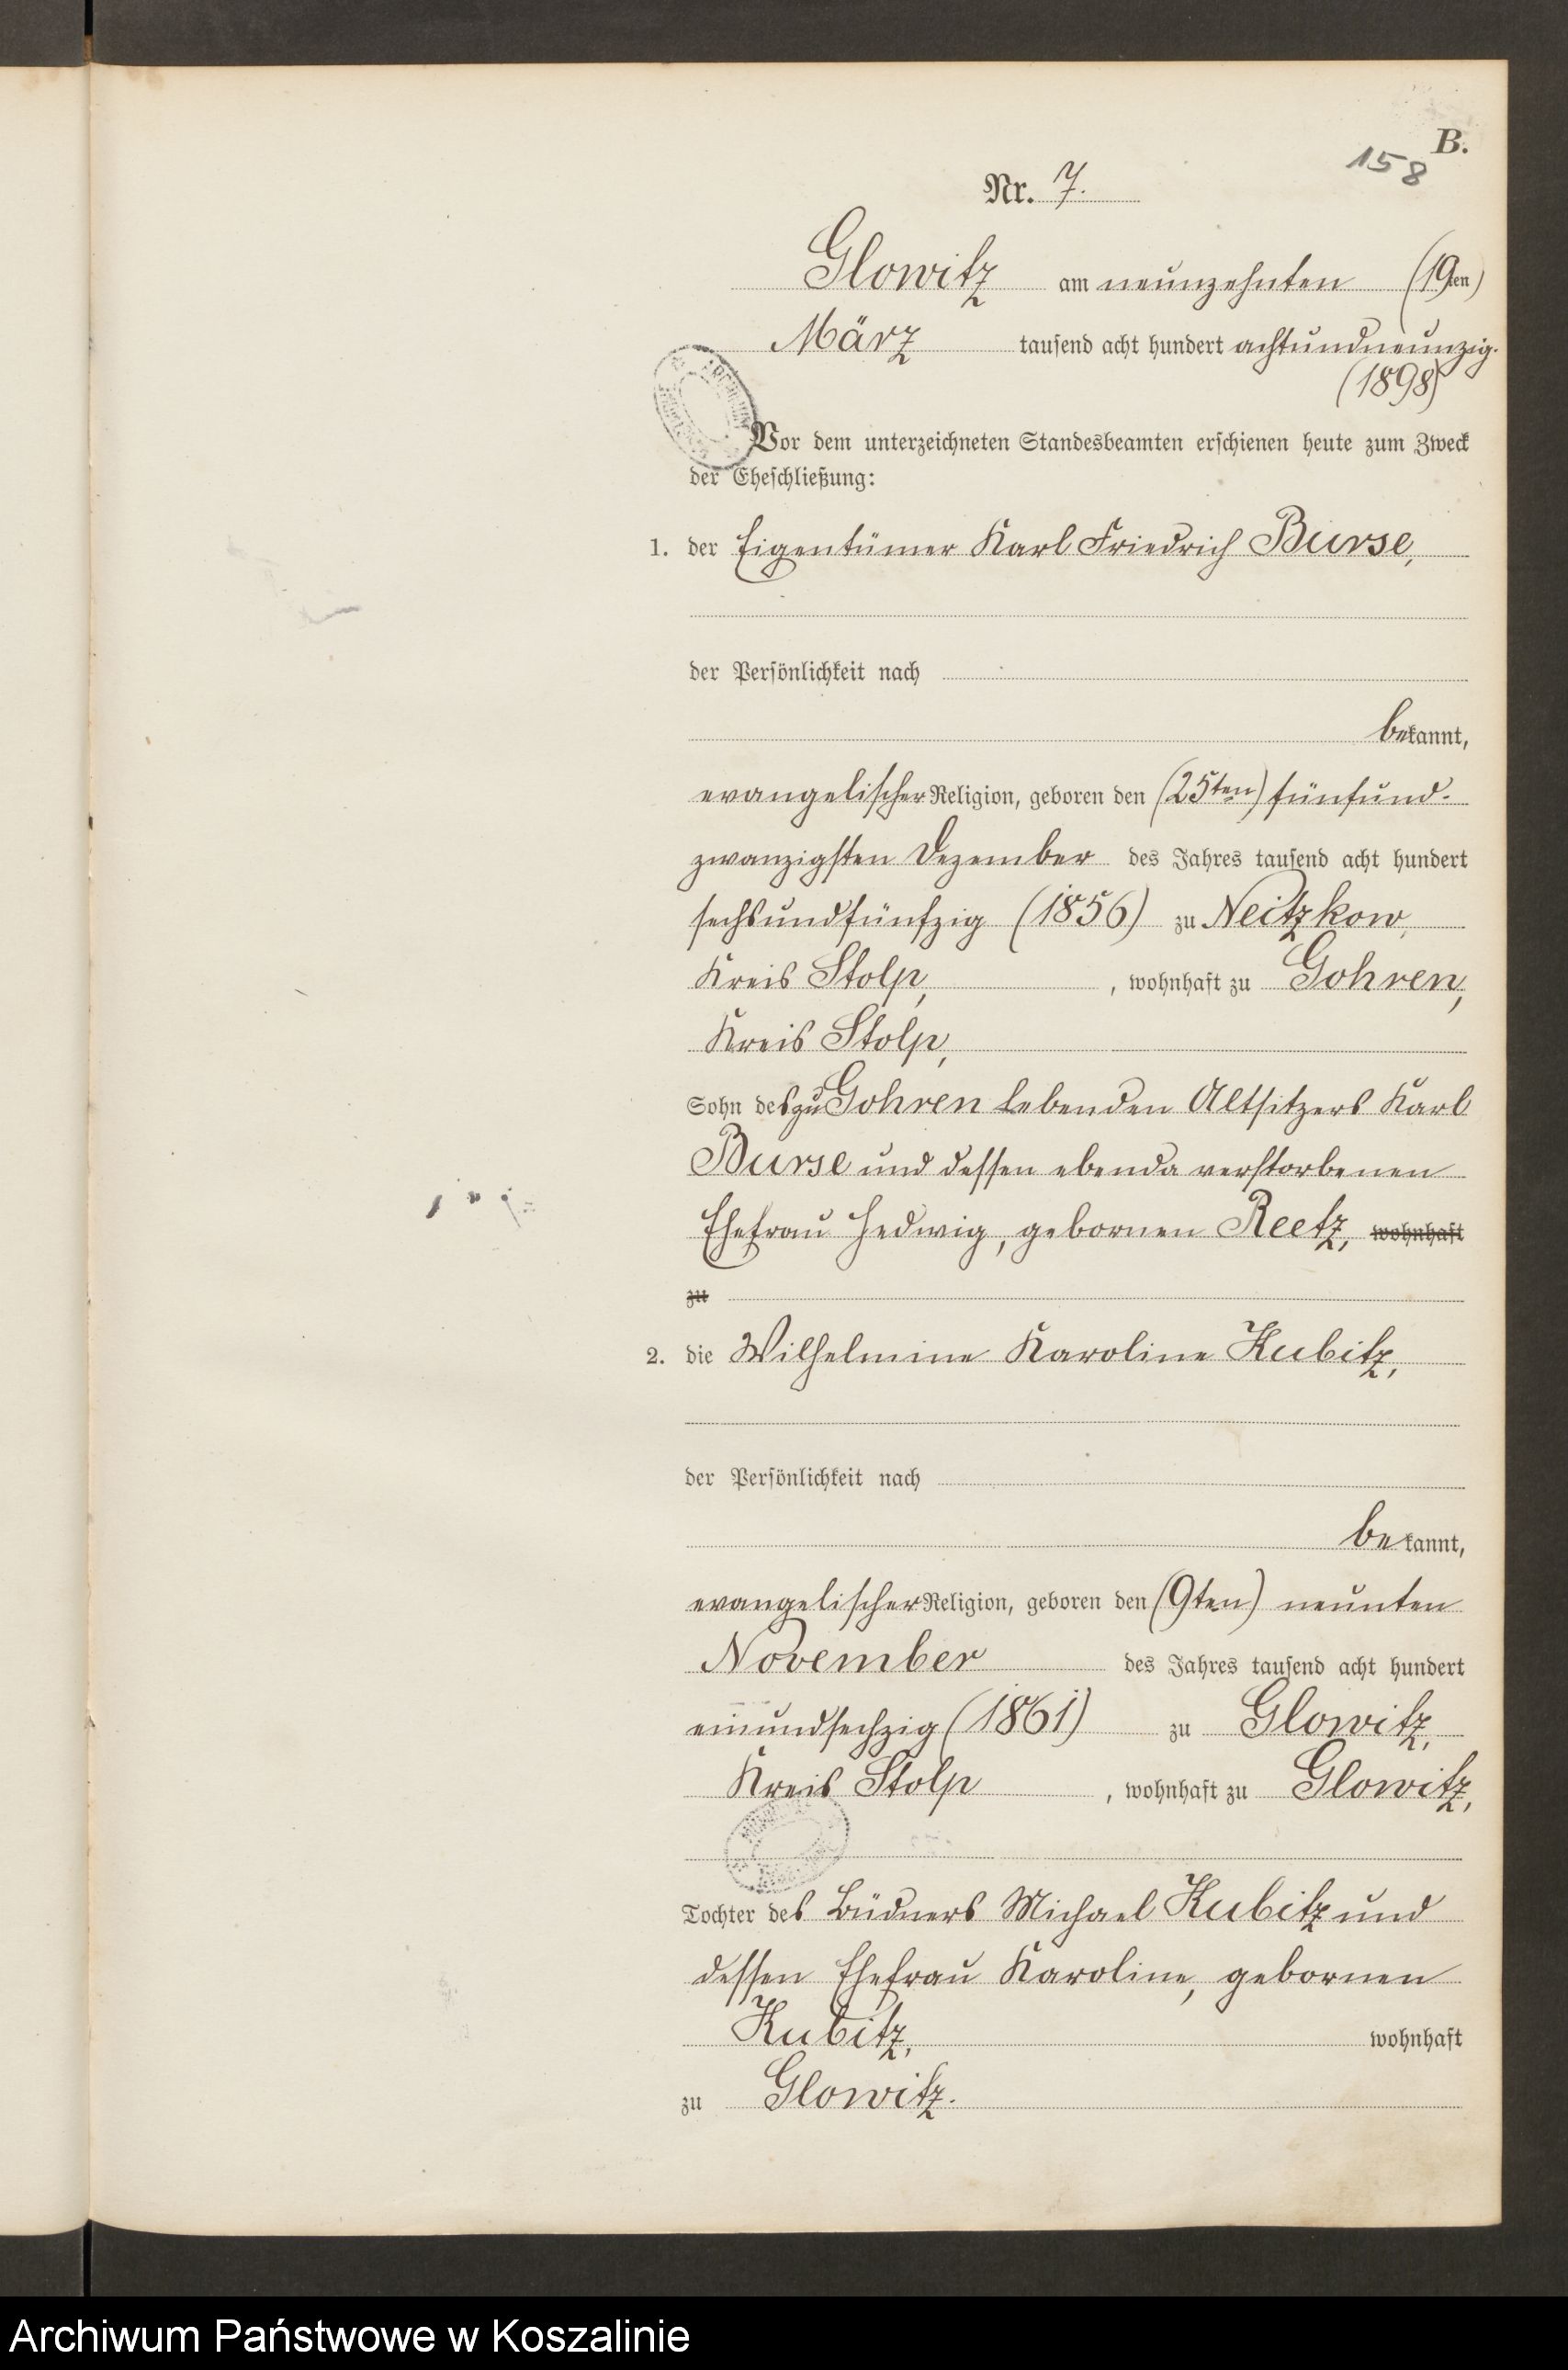 B.
158
Nr. 7.
Glowitz am neunzehnten (19ten)
März tausend acht hundert achtundneunzig.
(1898)
Vor dem unterzeichneten Standesbeamten erschienen heute zum Zweck
der Eheschließung:
1. der Eigentümer Karl Friedrich Burse,
der Persönlichkeit nach
bekannt,
evangelischer Religion, geboren den (25ten) fünfund-
zwanzigsten Dezember des Jahres tausend acht hundert
sechsundfünfzig (1856) zu Neitzkow,
Kreis Stolp, , wohnhaft zu Gohren,
Kreis Stolp,
Sohn des zu Gohren lebenden Altsitzers Karl
Burse und dessen ebenda verstorbenen
Ehefrau Hedwig, gebornen Reetz, wohnhaft
zu
2. die Wilhelmine Karoline Kubitz,
der Persönlichkeit nach
bekannt,
evangelischer Religion, geboren den (9ten) neunten
November des Jahres tausend acht hundert
einundsechzig (1861) zu Glowitz,
Kreis Stolp , wohnhaft zu Glowitz,
Tochter des Büdners Michael Kubitz und
dessen Ehefrau Karoline, gebornen
Kubitz, wohnhaft
zu Glowitz.
Archiwum Państwowe w Koszalinie